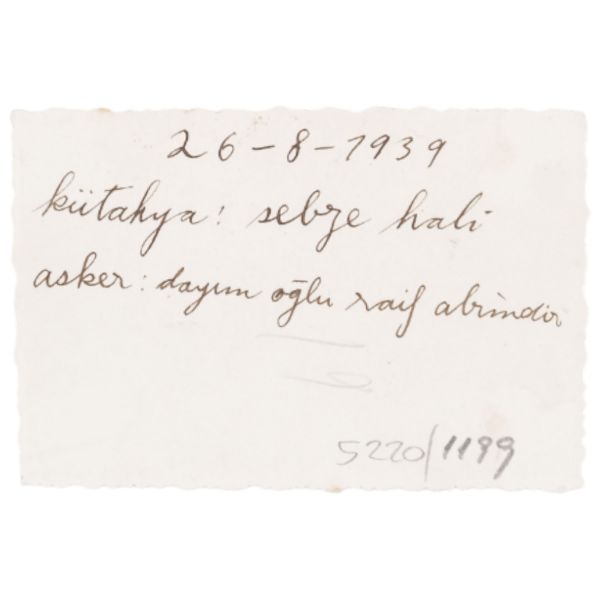 26-8-1939
kütahya: sebze hali
asker: dayım oğlu raif abimdir
5220/1199